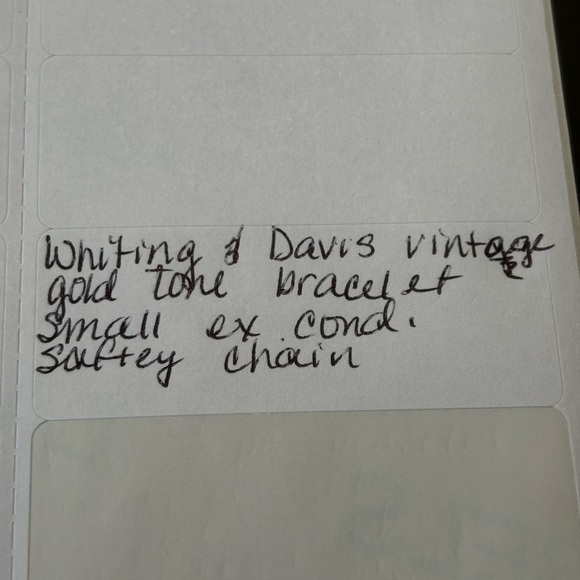 Whiting & Davis vintage
gold tone bracelet
small ex. cond.
saftey chain